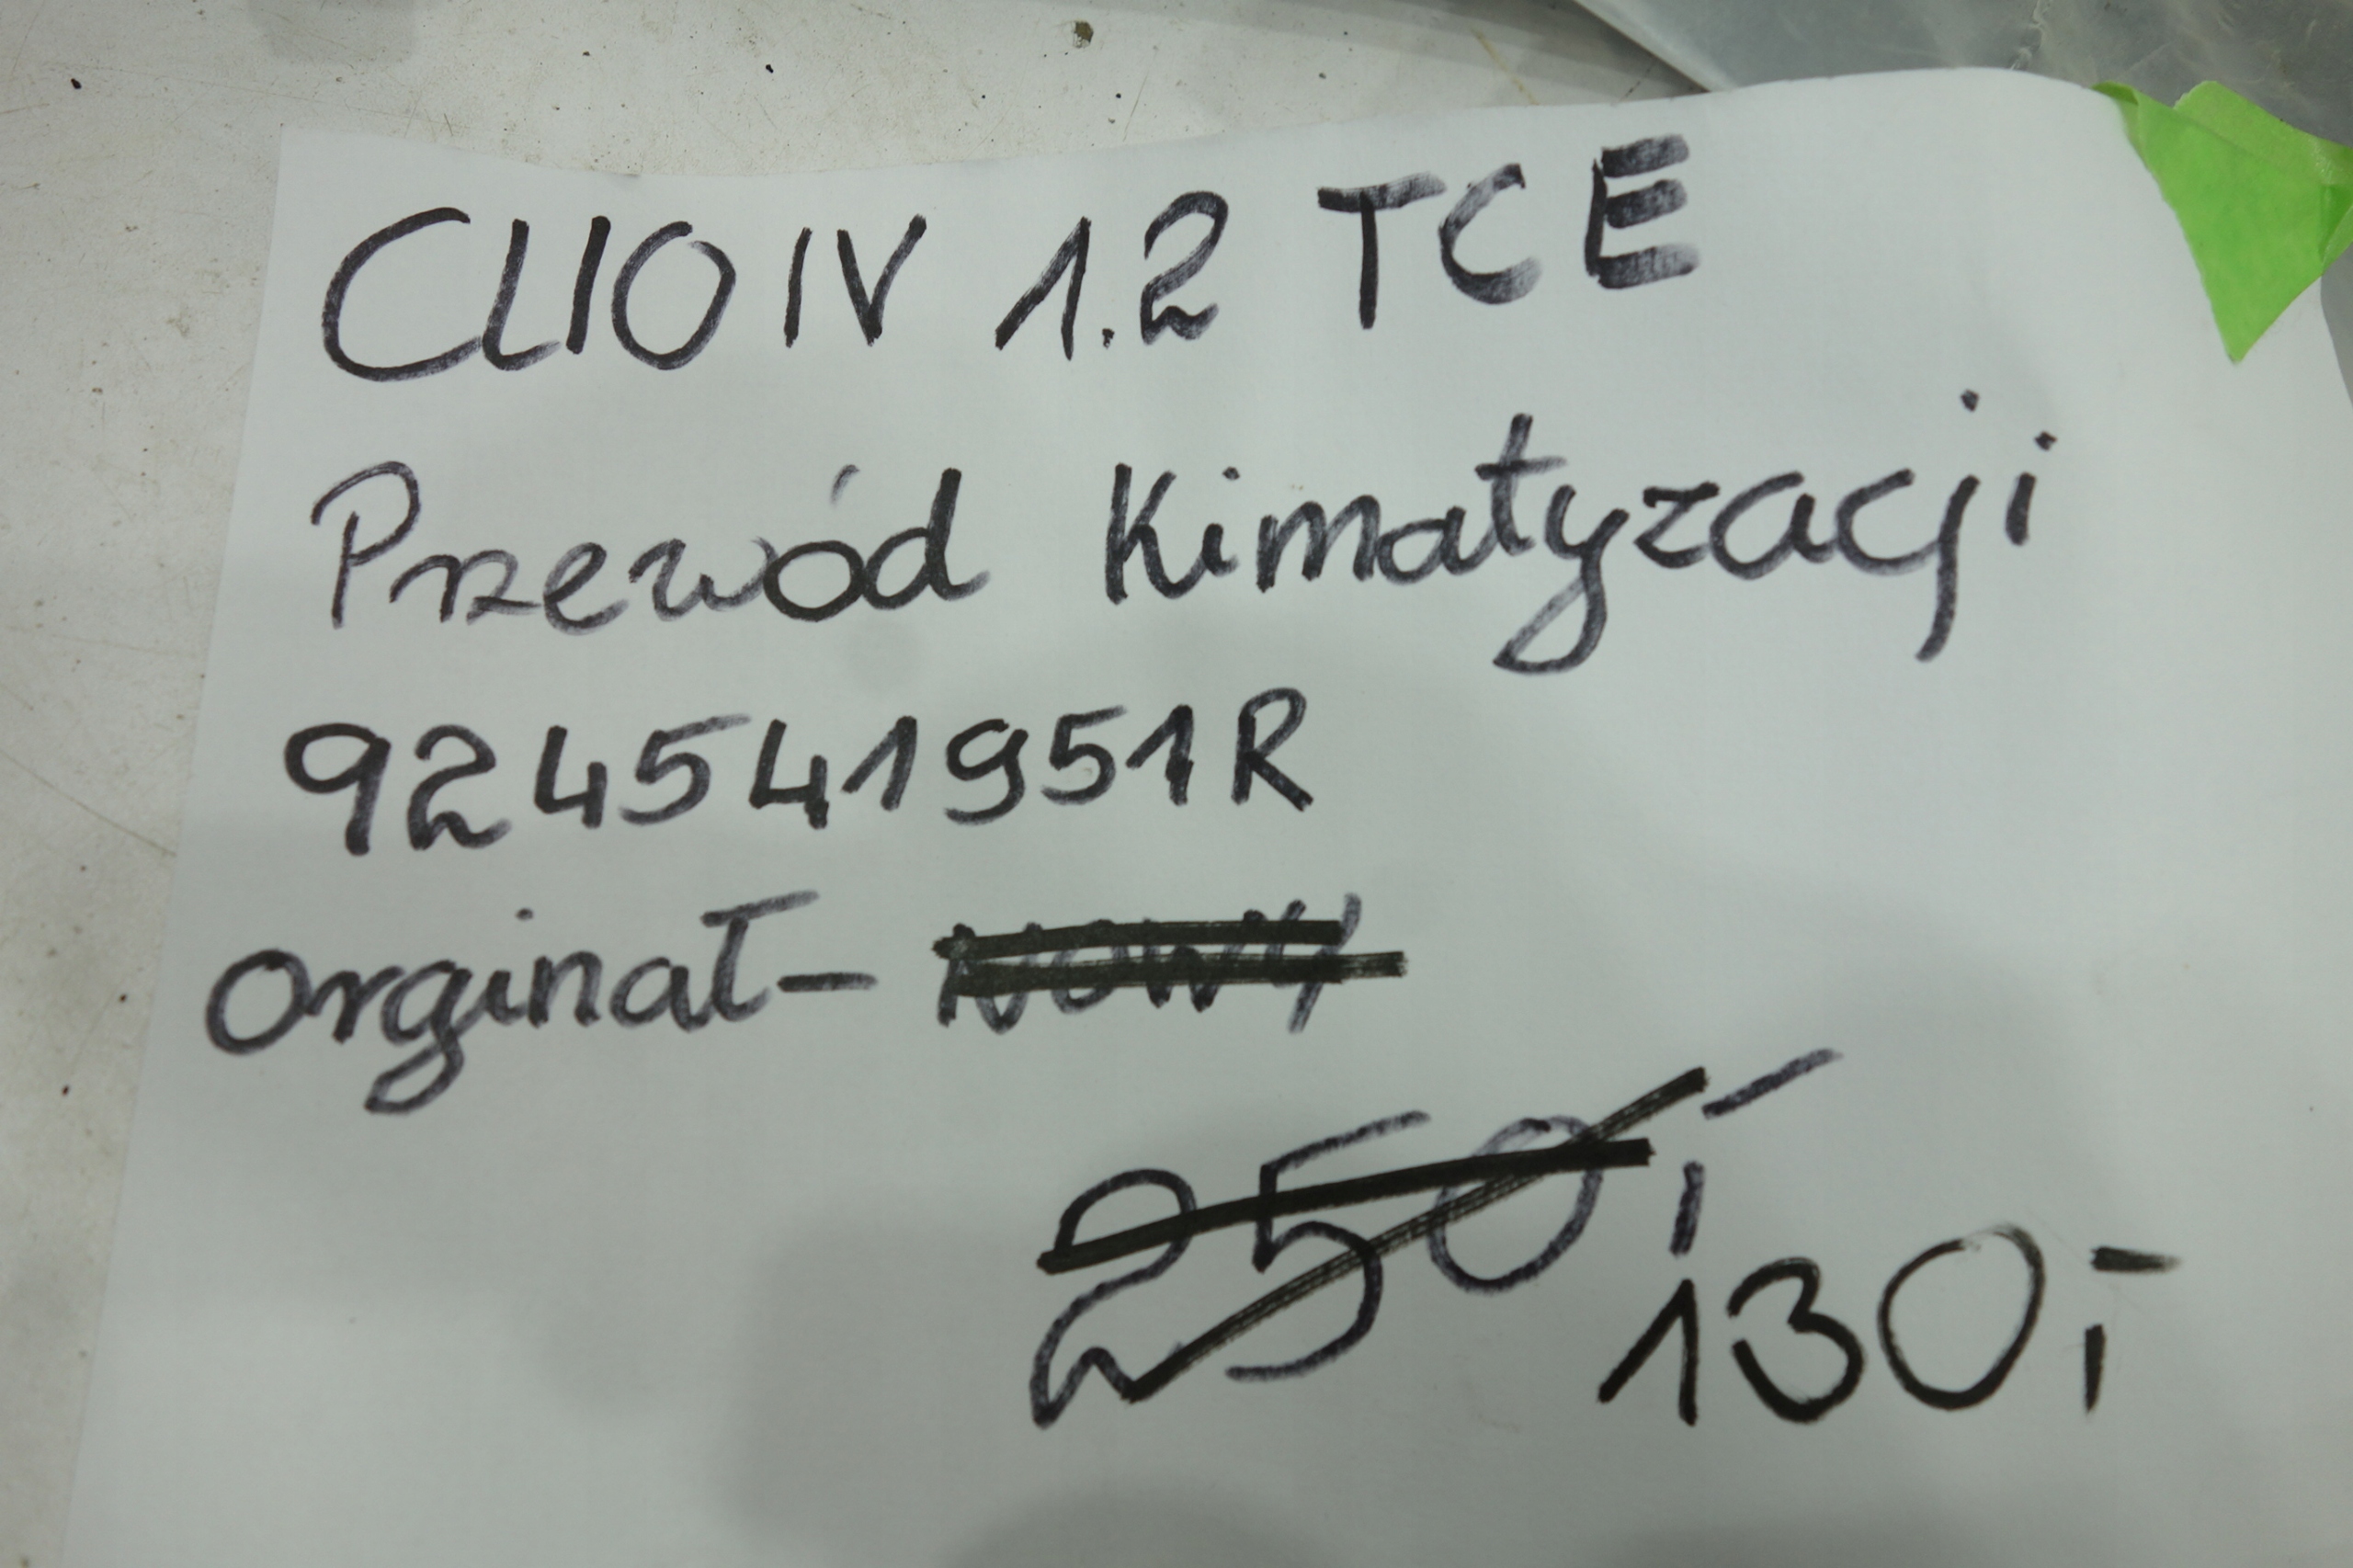 CLIO IV 1.2 TCE
Przewód Kimatyzacji
924541951R
Orginał - NOWY
250,-
130,-